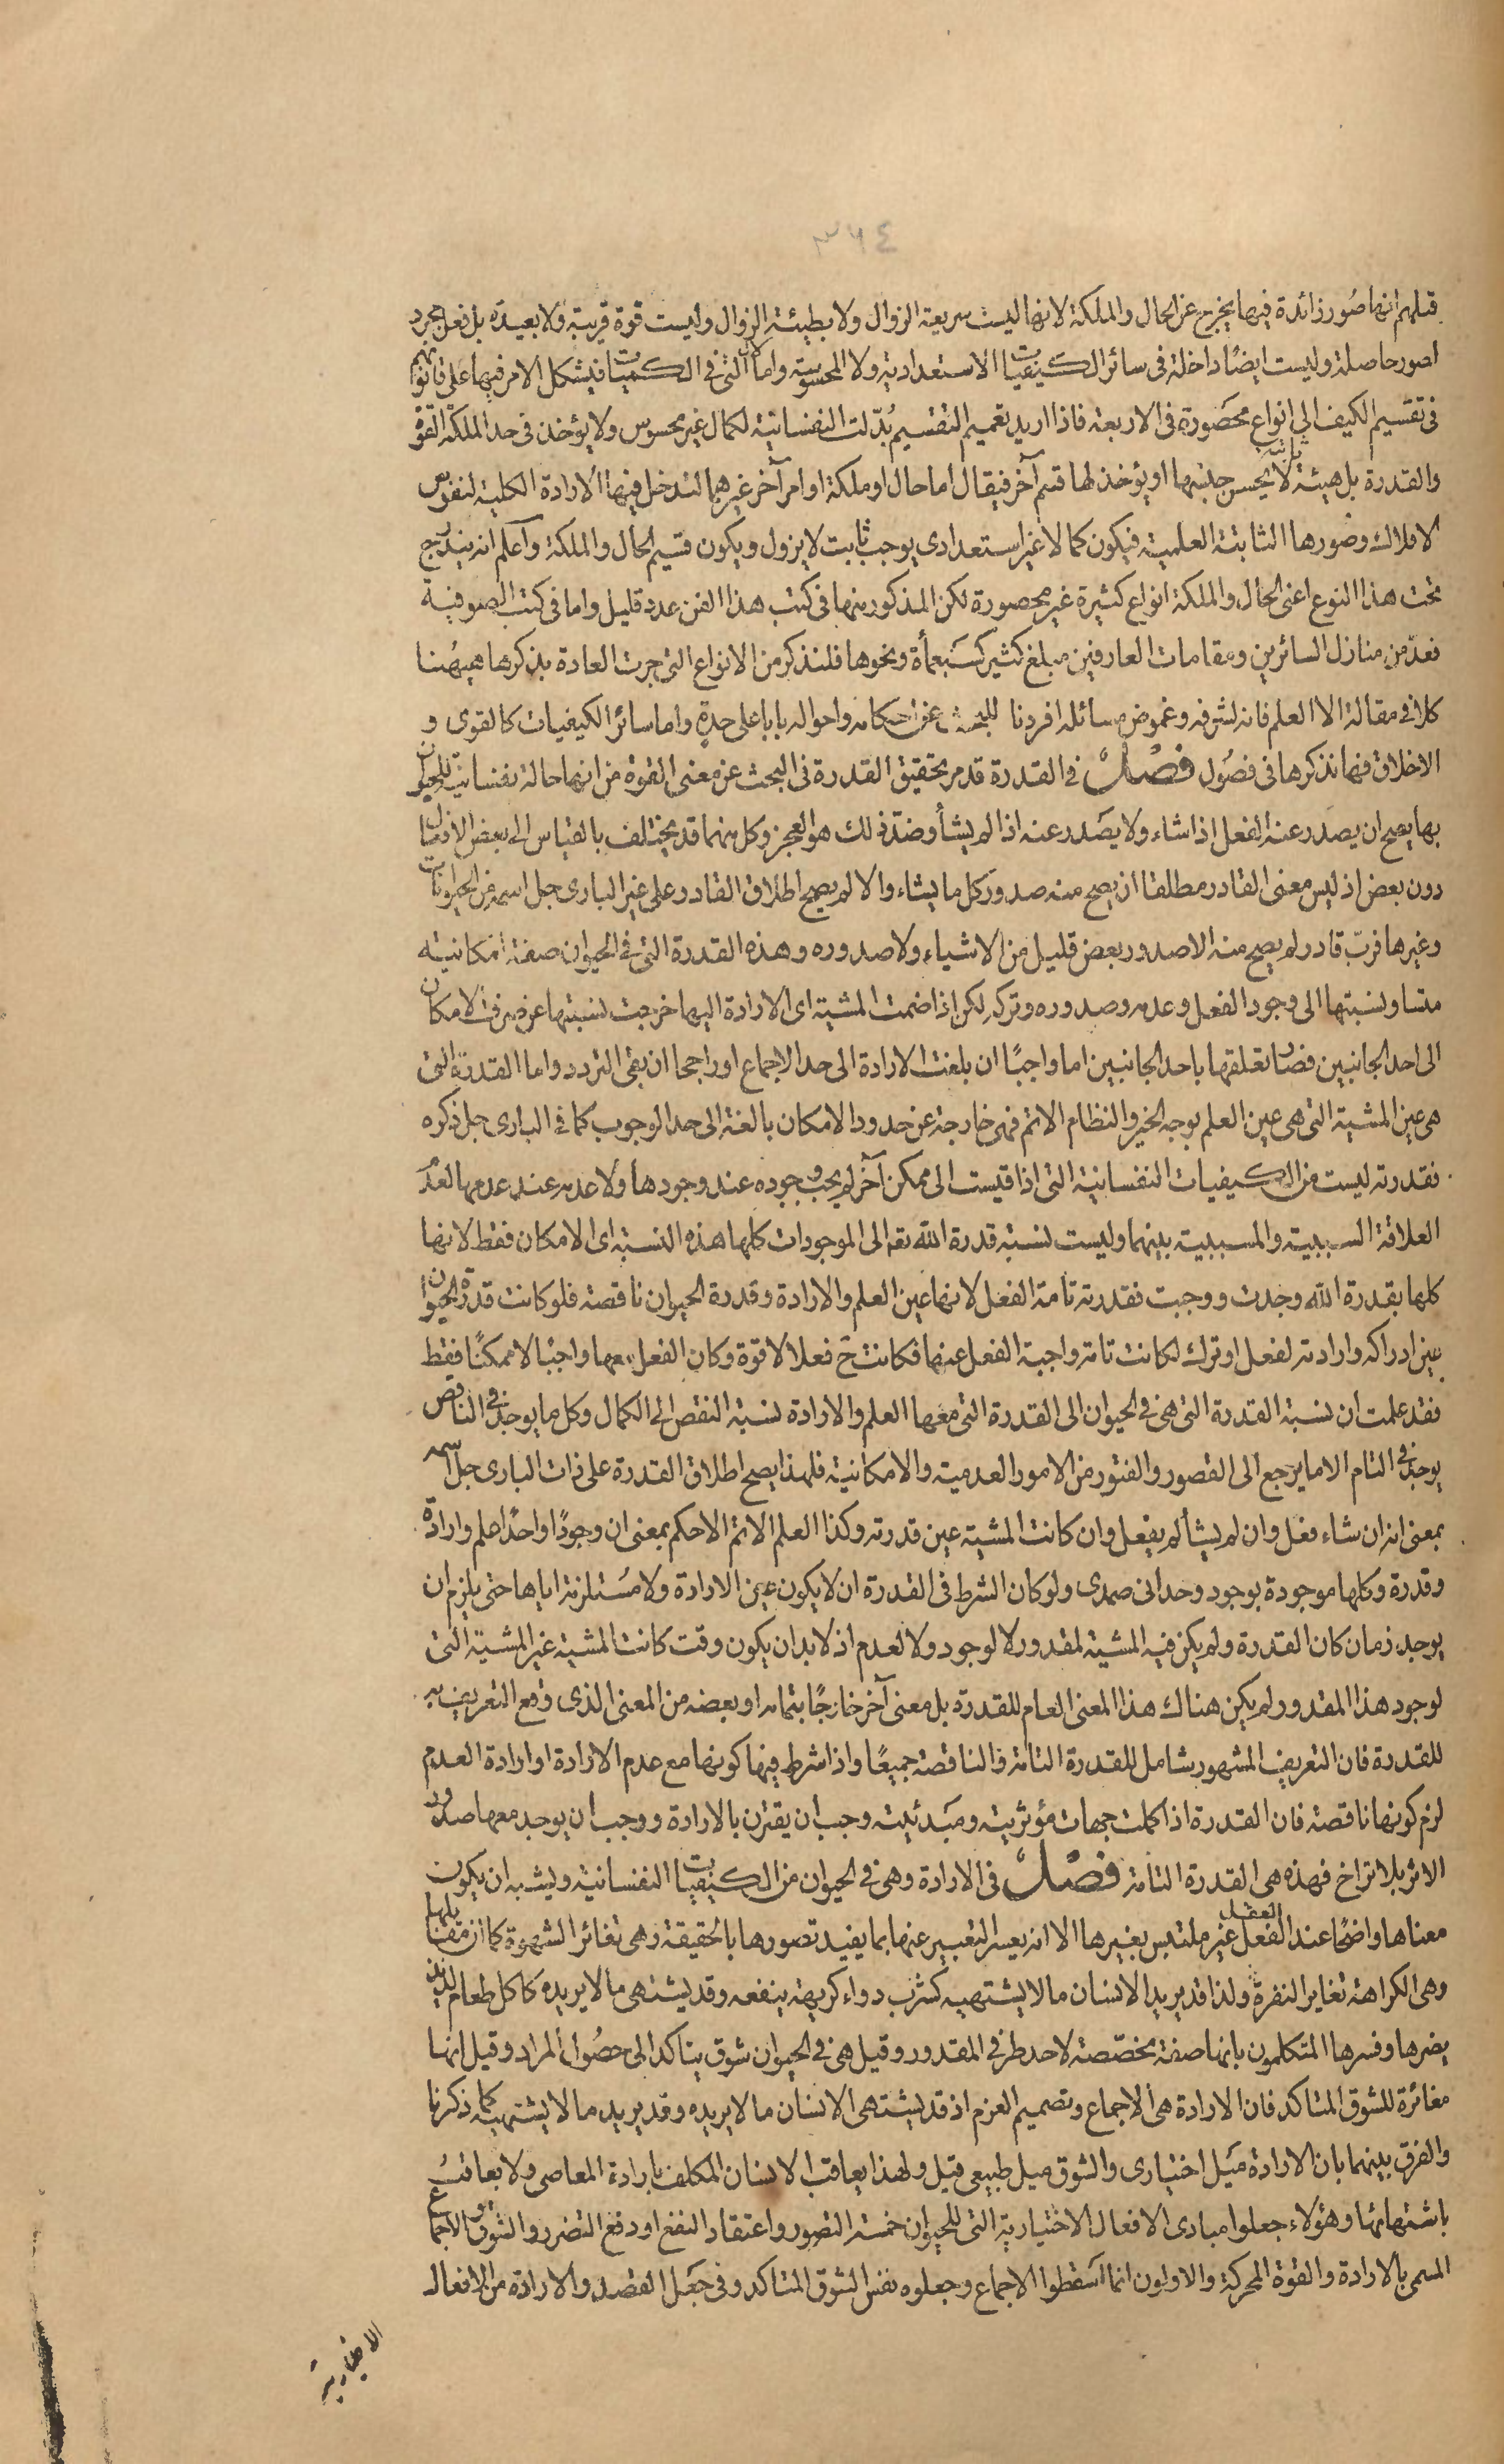 ٣٦٤
قبلهم انها صور زائدة فيها يخرج عن الحال والملكة لانها ليست سريعة الزوال ولا بطيئة الزوال وليست قوة قريبة ولا بعيدة بل فعل مجرد
لصور حاصلة وليست ايضا داخلة فى سائر الكيفيات الاستعدادية ولا المحسوسة واما التى فى الكميات فيشكل الامر فيها على قانونهم
فى تقسيم الكيف الى انواع محصورة فى الاربعة فاذا اريد تعميم التقسيم بدلت النفسانية لكمال غير محسوس ولا يؤخذ فى حد الملكة القوة
والقدرة بل هيئة ثابتة لا يحسن جنسها او يؤخذ لها قسم آخر فيقال اما حال او ملكة او امر آخر غيرهما لتدخل فيها الارادة الكلية لنفوس
الافلاك وصورها الثابتة العلمية فيكون كمالا غير استعدادى يوجب ثابت لا يزول ويكون قسيم الحال والملكة واعلم انه يندرج
تحت هذا النوع اعنى الحال والملكة انواع كثيرة غير محصورة لكن المذكور منها فى كتب هذا الفن عدد قليل واما فى كتب الصوفية
فعد من منازل السائرين ومقامات العارفين مبلغ كثير كسبعمأة ونحوها فلنذكر من الانواع التى جرت العادة بذكرها هيهنا
كلا فى مقالة الا العلم فانه لشرفه وغموض مسائله افردنا للبحث عن احكامه واحواله بابا على حدة واما سائر الكيفيات كالقوى و
الاخلاق فنها نذكرها فى فصول فصل فى القدرة قد مر تحقيق القدرة فى البحث عن معنى القوة من انها حالة نفسانية للحيوان
بها يصح ان يصدر عنه الفعل اذا شاء ولا يصدر عنه اذا لم يشأ وضد ذلك هو العجز وكل منهما قد يختلف بالقياس الى بعض الافعال
دون بعض اذ ليس معنى القادر مطلقا ان يصح منه صدور كل ما يشاء والا لم يصح اطلاق القادر على غير البارى جل اسمه من الحيوانات
وغيرها فرب قادر لم يصح منه الا صدور بعض قليل من الاشياء ولا صدوره وهذه القدرة التى فى الحيوان صفة امكانية
متساو نسبتها الى وجود الفعل وعدمه وصدوره وتركه لكن اذا ضمت المشية اى الارادة اليها خرجت نسبتها عن صرف الامكان
الى احد الجانبين فصار تعلقها باحد الجانبين اما واجبًا ان بلغت الارادة الى حد الاجماع او راجحا ان بقى التردد واما القدرة التى
هى عين المشية التى هى عين العلم بوجه الخير والنظام الاتم فهى خارجة عن حدود الامكان بالغة الى حد الوجوب كما فى البارى جل ذكره
فقدرته ليست من الكيفيات النفسانية التى اذا قيست الى ممكن آخر لم يجب وجوده عند وجودها ولا عدمه عند عدمها لعدم
العلاقة السببية والمسببية بينهما وليست نسبة قدرة الله تعالى الى الموجودات كلها هذه النسبة اى الامكان فقط لانها
كلها بقدرة الله وجدت ووجبت فقدرته تامة الفعل لانها عين العلم والارادة وقدرة الحيوان ناقصة فلو كانت قدرة الحيوان
عين ادراكه وارادته لفعل او ترك لكانت تامة واجبة الفعل عنها فكانت ح فعلا لا قوة وكان الفعل معها واجبًا لا ممكنًا فقط
فقد علمت ان نسبة القدرة التى هى فى الحيوان الى القدرة التى معها العلم والارادة نسبة النقص الى الكمال وكل ما يوجد فى الناقص
يوجد فى التام الا ما يرجع الى القصور والفتور من الامور العدمية والامكانية فلهذا يصح اطلاق القدرة على ذات البارى جل اسمه
بمعنى انه ان شاء فعل وان لم يشأ لم يفعل وان كانت المشية عين قدرته وكذا العلم الاتم الاحكم بمعنى ان وجودًا واحدًا علم وارادة
وقدرة وكلها موجودة بوجود وحدانى صمدى ولو كان الشرط فى القدرة ان لا يكون عين الارادة ولا مستلزمة اياها حتى يلزم ان
يوجد زمان كان القدرة ولم يكن فيه المشية لمقدور لا لوجود ولا لعدم اذ لا بد ان يكون وقت كانت المشية غير المشية التى
لوجود هذا المقدور لم يكن هناك هذا المعنى العام للقدرة بل معنى آخر خارجًا بتمامه او بعضه من المعنى الذى وقع التعريف به
للقدرة فان التعريف المشهور شامل للقدرة التامة والناقصة جميعًا واذا شرط فيها كونها مع عدم الارادة او ارادة العدم
لزم كونها ناقصة فان القدرة اذا كملت جهات مؤثريته ومبدئيته وجب ان يقترن بالارادة ووجب ان يوجد معها صدور
الاثر بلا تراخ فهذه هى القدرة التامة فصل فى الارادة وهى فى الحيوان من الكيفيات النفسانية ويشبه ان يكون
معناها واضحًا عند الفعل العقل غير ملتبس بغيرها الا انه يعسر التعبير عنها بما يفيد تصورها بالحقيقة وهى تغائر الشهوة كما ان مقابلها
وهى الكراهة تغاير النفرة ولذا قد يريد الانسان ما لا يشتهيه كشرب دواء كريهة ينفعه وقد يشتهى ما لا يريده كاكل طعام لذيذ
يضرها وفسرها المتكلمون بانها صفة مخصصة لاحد طرفى المقدور وقيل هى فى الحيوان شوق يتاكد الى حصول المراد وقيل انها
مغائرة للشوق المتاكد فان الارادة هى الاجماع وتصميم العزم اذ قد يشتهى الانسان ما لا يريده وقد يريد ما لا يشتهيه كما ذكرنا
والفرق بينهما بان الارادة ميل اختيارى والشوق ميل طبيعى قيل ولهذا يعاقب الانسان المكلف بارادة المعاصى ولا يعاقب
باشتهائها وهؤلاء جعلوا مبادى الافعال الاختيارية التى للحيوان خمسة التصور واعتقاد النفع او دفع التضرر والشوق والاجماع
المسمى بالارادة والقوة المحركة والاولون انما اسقطوا الاجماع وجعلوه نفس الشوق المتاكد وفى جعل القصد والارادة من الافعال
الاختيارية